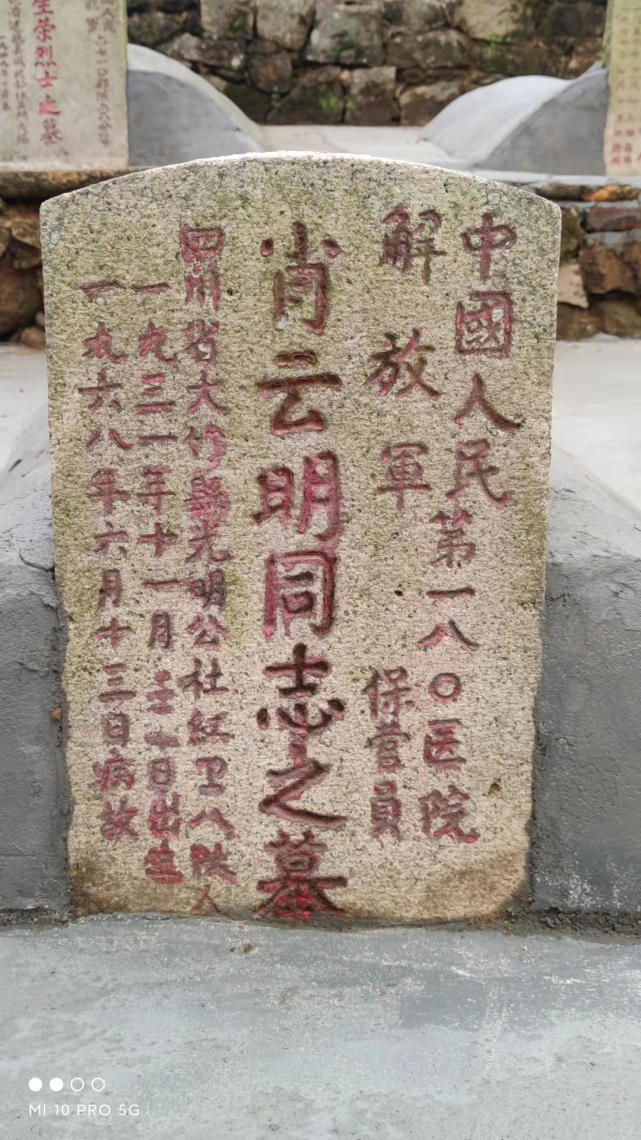 中國人民第一八〇医院
解放軍 保管員
肖云明同志之墓
四川省大竹縣光明公社紅卫八队人
一九三一年十一月二十日出生
一九六八年六月十三日病故
生荣烈士之墓
MI 10 PRO 5G